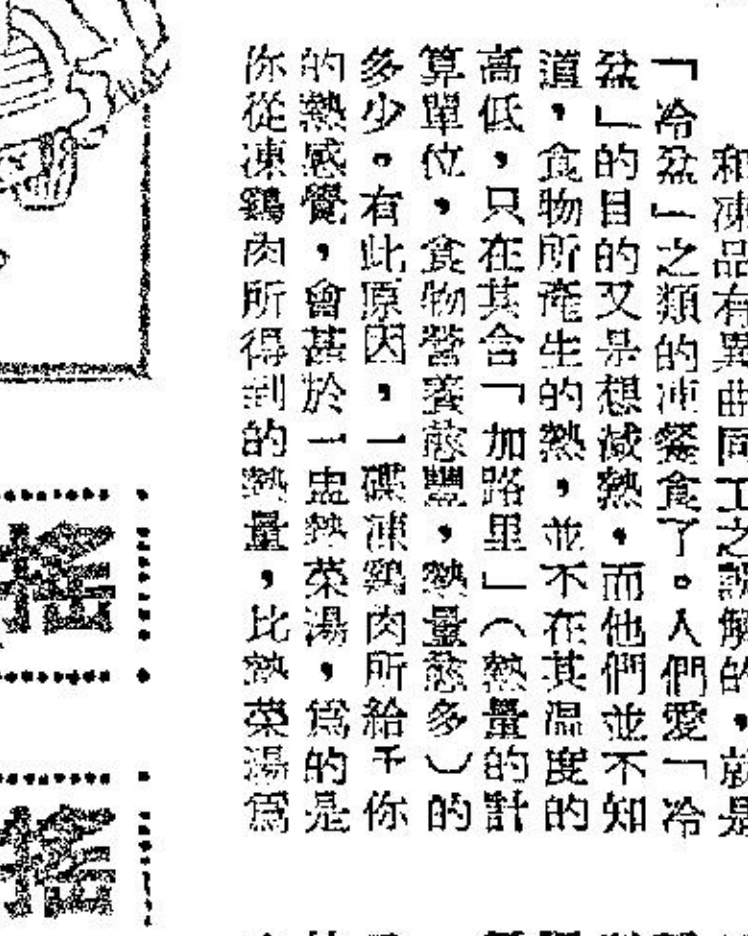 和凍品有異曲同工之誤解的，就是
「冷盆」之類的凍餐食了。人們愛「冷
盆」的目的又是想減熱，而他們並不知
道，食物所產生的熱，並不在其溫度的
高低，只在其含「加路里」（熱量的計
算單位，食物營養愈豐，熱量愈多）的
多少。有此原因，一碟凍鷄肉所給予你
的熱感覺，會甚於一盅熱菜湯，為的是
你從凍鷄肉所得到的熱量，比熱菜湯為